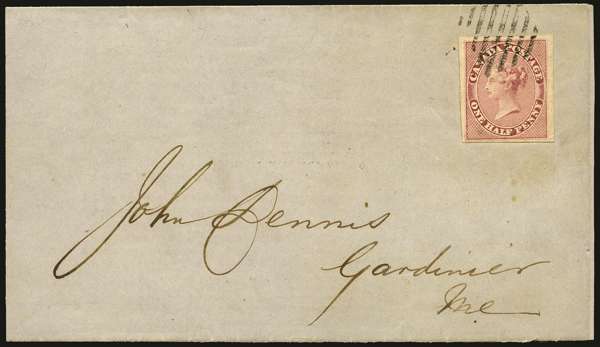 CANADA POSTAGE
ONE HALF PENNY
John Dennis
Gardinier
Me